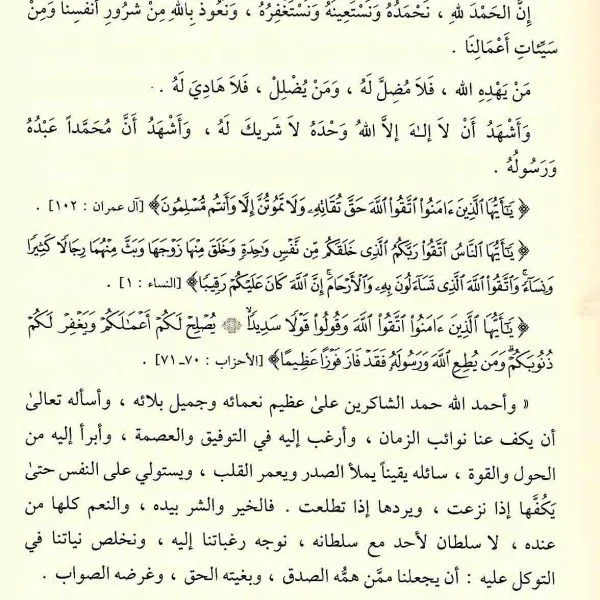 إِنَّ الحَمْدَ للهِ ، نَحْمَدُهُ وَنَسْتَعِينَهُ وَنَسْتَغْفِرُهُ ، وَنَعُوذُ بِاللهِ مِنْ شُرُورِ أَنْفُسِنَا وَمِنْ
سَيِّئَاتِ أَعْمَالِنَا .
مَنْ يَهْدِهِ الله ، فَلاَ مُضِلَّ لَهُ ، وَمَنْ يُضْلِلْ ، فَلاَ هَادِيَ لَهُ .
وَأَشْهَدُ أَنْ لاَ إِلـٰهَ إِلاَّ اللهُ وَحْدَهُ لاَ شَرِيكَ لَهُ ، وَأَشْهَدُ أَنَّ مُحَمَّداً عَبْدُهُ
وَرَسُولُهُ .
﴿ يَٰٓأَيُّهَا ٱلَّذِينَ ءَامَنُوا۟ ٱتَّقُوا۟ ٱللَّهَ حَقَّ تُقَاتِهِۦ وَلَا تَمُوتُنَّ إِلَّا وَأَنتُم مُّسْلِمُونَ﴾ [آل عمران : ١٠٢] .
﴿ يَٰٓأَيُّهَا ٱلنَّاسُ ٱتَّقُوا۟ رَبَّكُمُ ٱلَّذِى خَلَقَكُم مِّن نَّفْسٍ وَٰحِدَةٍ وَخَلَقَ مِنْهَا زَوْجَهَا وَبَثَّ مِنْهُمَا رِجَالًا كَثِيرًا
وَنِسَآءً ۚ وَٱتَّقُوا۟ ٱللَّهَ ٱلَّذِى تَسَآءَلُونَ بِهِۦ وَٱلْأَرْحَامَ ۚ إِنَّ ٱللَّهَ كَانَ عَلَيْكُمْ رَقِيبًا﴾ [النساء : ١] .
﴿ يَٰٓأَيُّهَا ٱلَّذِينَ ءَامَنُوا۟ ٱتَّقُوا۟ ٱللَّهَ وَقُولُوا۟ قَوْلًا سَدِيدًا ۝ يُصْلِحْ لَكُمْ أَعْمَٰلَكُمْ وَيَغْفِرْ لَكُمْ
ذُنُوبَكُمْ ۗ وَمَن يُطِعِ ٱللَّهَ وَرَسُولَهُۥ فَقَدْ فَازَ فَوْزًا عَظِيمًا﴾ [الأحزاب : ٧٠ـ٧١] .
« وأحمد الله حمد الشاكرين علىٰ عظيم نعمائه وجميل بلائه ، وأسأله تعالىٰ
أن يكف عنا نوائب الزمان ، وأرغب إليه في التوفيق والعصمة ، وأبرأ إليه من
الحول والقوة ، سائله يقيناً يملأ الصدر ويعمر القلب ، ويستولي على النفس حتىٰ
يَكُفَّها إذا نزعت ، ويردها إذا تطلعت . فالخير والشر بيده ، والنعم كلها من
عنده ، لا سلطان لأحد مع سلطانه ، نوجه رغباتنا إليه ، ونخلص نياتنا في
التوكل عليه : أن يجعلنا ممَّن همُّه الصدق ، وبغيته الحق ، وغرضه الصواب .